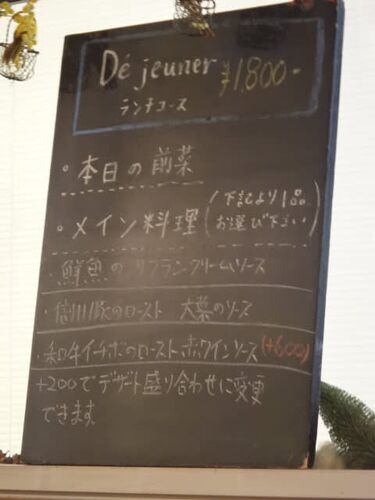 Déjeuner ¥1,800-
ランチコース
・本日の前菜
・メイン料理 (下記より1品
お選び下さい)
・鮮魚のサフランクリームソース
・信州豚のロースト 大葉のソース
・和牛イチボのロースト、赤ワインソース (+600)
+200でデザート盛り合わせに変更
できます